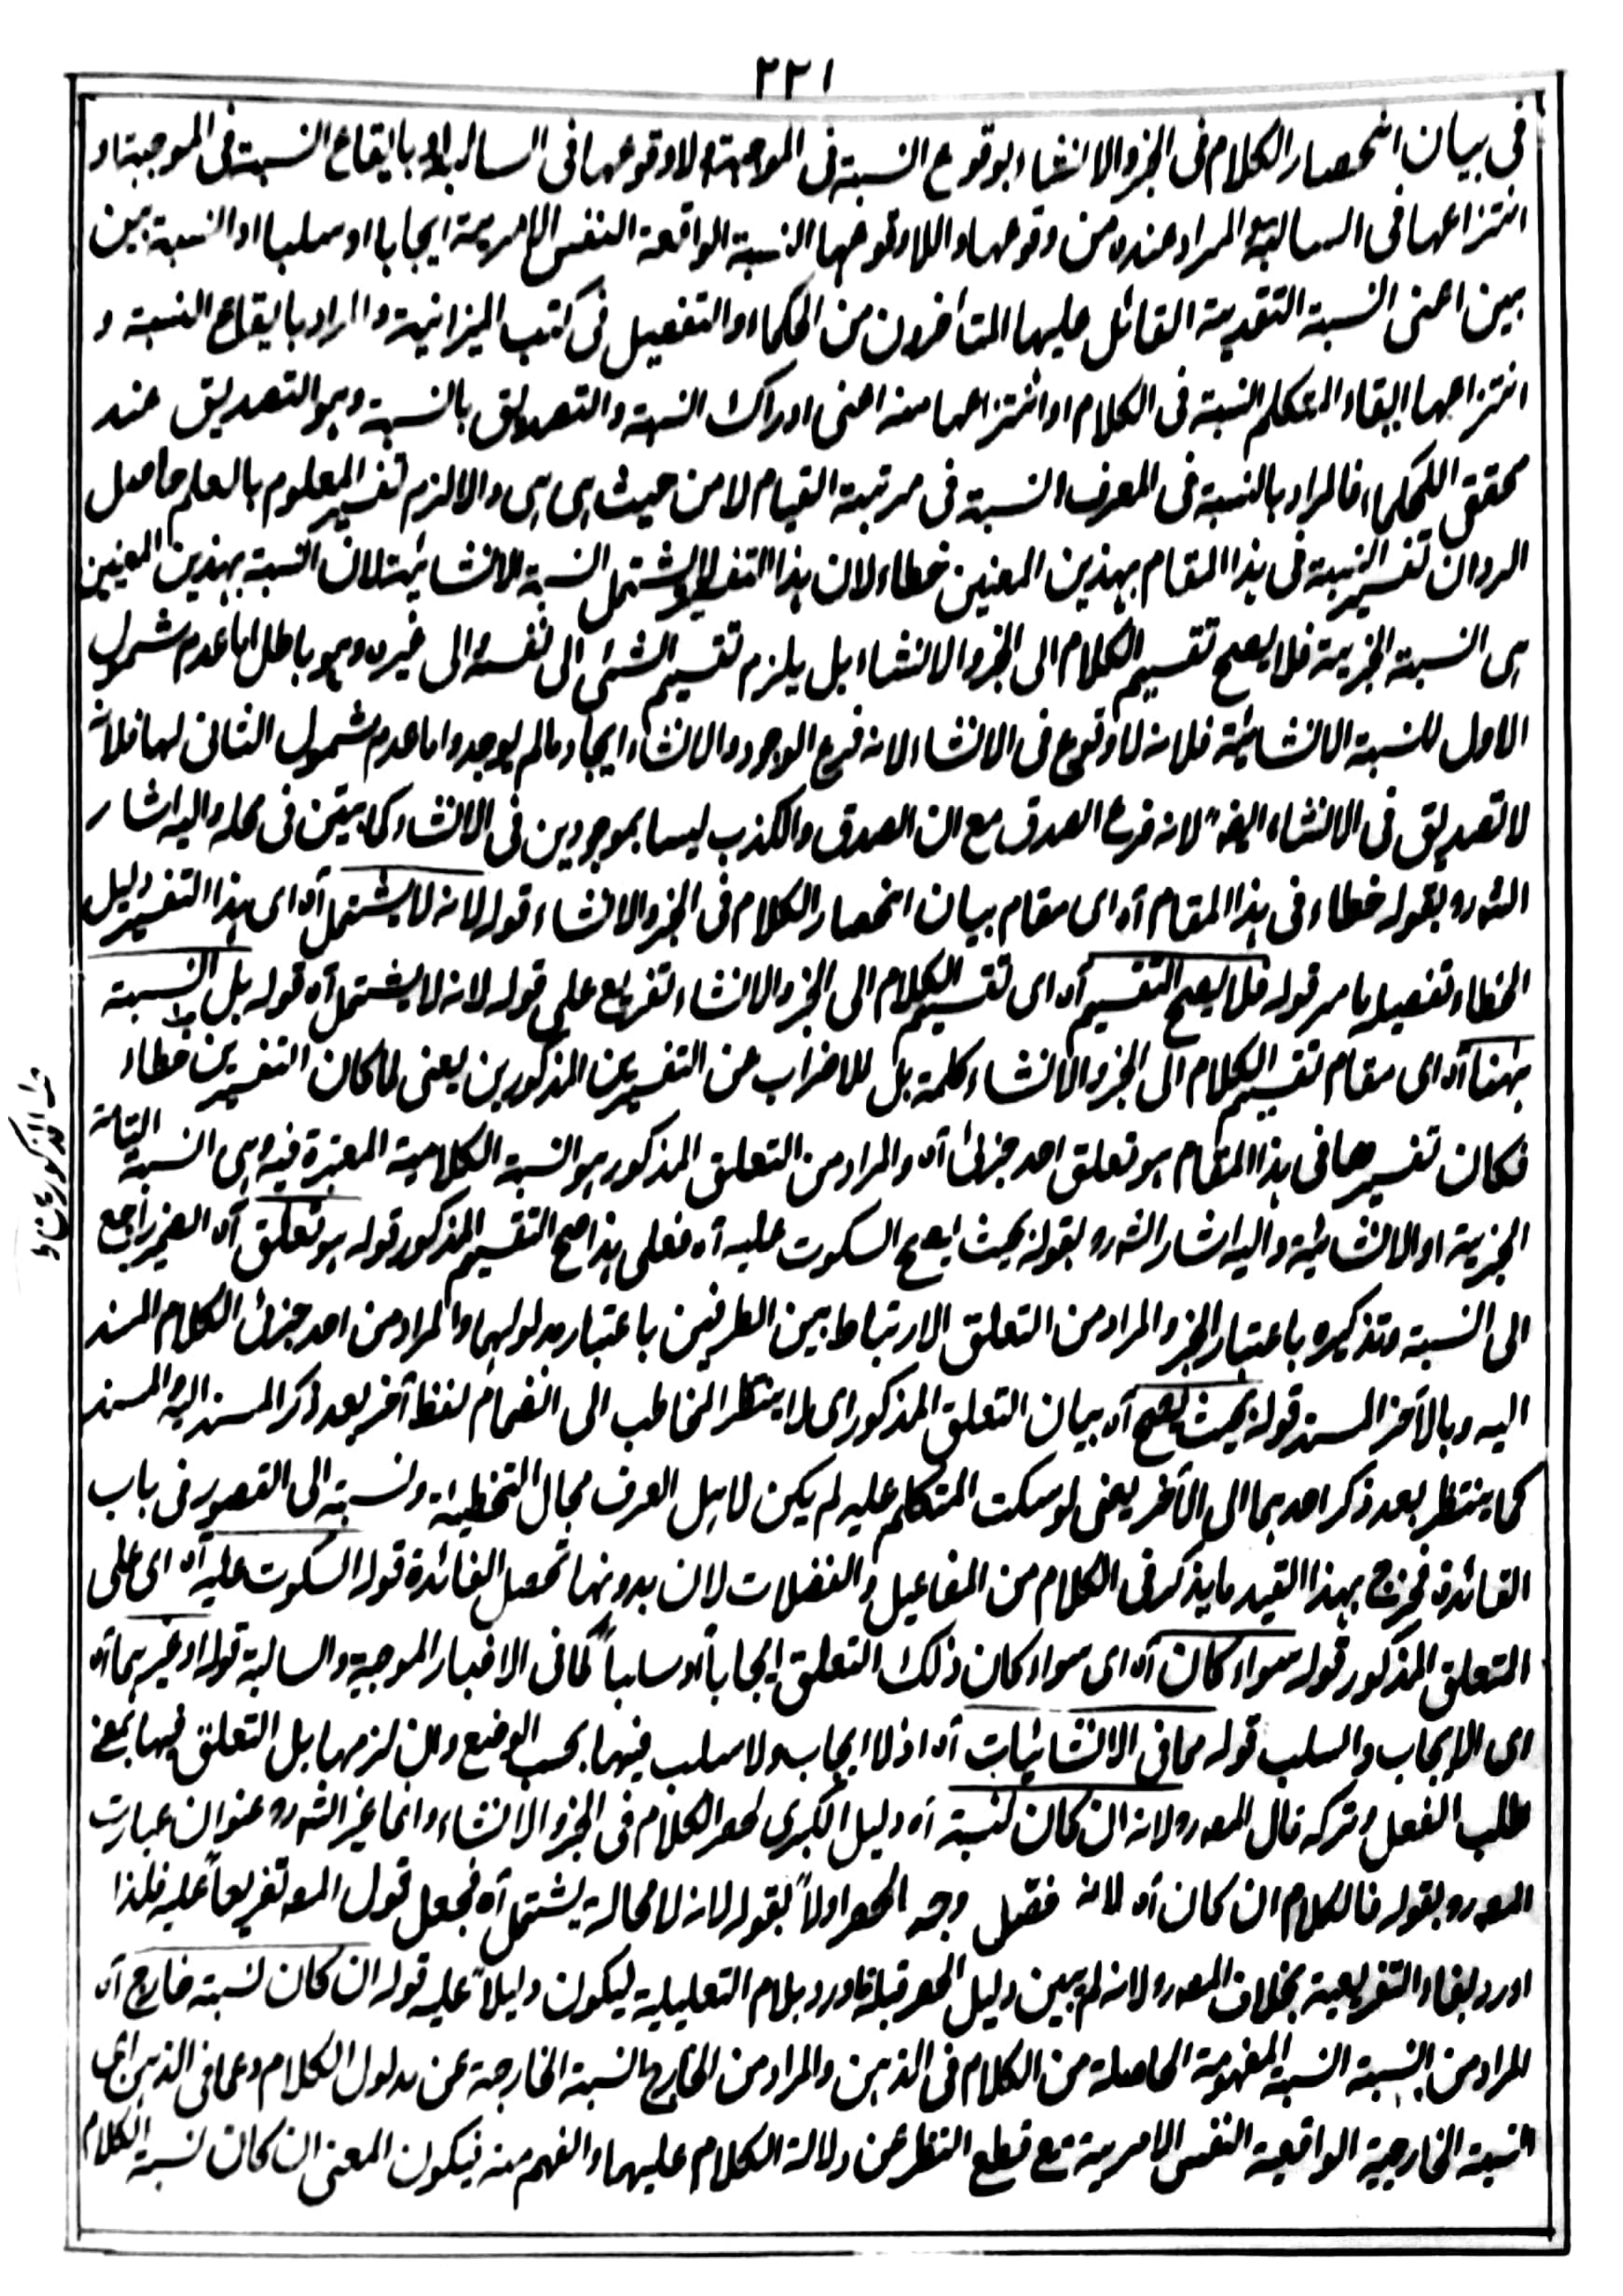 ٢٢١
فى بيان انحصار الكلام فى الخبر والانشاء بوقوع النسبة فى الموجبة ولا وقوعها فى السالبة او بايقاع النسبة فى الموجبة او
انتزاعها فى السالبة المراد عنده من وقوعها واللاوقوعها النسبة الواقعة النفس الامرية ايجابا او سلبا او النسبة بين
بين اعنى النسبة التقييدية القائل عليها المتأخرون من الحكماء والتفصيل فى كتب الميزانية والمراد بايقاع النسبة و
انتزاعها ابقاء المتكلم النسبة فى الكلام او انتزاعها منه اعنى ادراك النسبة والتصديق بالنسبة وهو التصديق عند
محققى الحكماء فالمراد بالنسبة فى المعرف النسبة فى مرتبة القيام لا من حيث هى هى والا لزم تفسير المعلوم بالعلم حاصل
الرد ان تفسير النسبة فى هذا المقام بهذين المعنين خطاء لان هذا التفسير لا يشتمل النسبة الانشائية لان النسبة بهذين المعنيين
هى النسبة الخبرية فلا يصح تقسيم الكلام الى الخبر والانشاء بل يلزم تقسيم الشئ الى نفسه والى غيره وهو باطل اما عدم شمول
الاول للنسبة الانشائية فلانه لا وقوع فى الانشاء لانه فرع الوجود والانشاء ايجاد مالم يوجد واما عدم شمول الثانى لها فلانه
لا تصديق فى الانشاء ايضا لانه فرع الصدق مع ان الصدق والكذب ليسا بموجودين فى الانشاء كما يتبين فى محله واليه اشار
الش رو بقوله خطاء فى هذا المقام آه اى مقام بيان انحصار الكلام فى الخبر والانشاء قوله لانه لا يشتمل آه اى هذا التفسير دليل
الخطاء تفصيله ما مر قوله فلا يصح التقسيم آه اى تقسيم الكلام الى الخبر والانشاء تفريع على قوله لانه لا يشتمل آه قوله بل النسبة
ههنا آه اى مقام تقسيم الكلام الى الخبر والانشاء كلمة بل للاضراب عن التفسيرين المذكورين يعنى لما كان التفسيرين خطاء
فكان تفسيرها فى هذا المقام هو تعلق احد جزئى آه والمراد من التعلق المذكور هو النسبة الكلامية المعتبرة فيه وهى النسبة التامة
الخبرية او الانشائية واليه اشار الش رو بقوله بحيث يصح السكوت عليه آه فعلى هذا صح التقسيم المذكور قوله هو تعلق آه الضمير راجع
الى النسبة وتذكيره باعتبار الخبر والمراد من التعلق الارتباط بين الطرفين باعتبار مدلولهما والمراد من احد جزئى الكلام المسند
اليه وبالآخر المسند قوله بحيث يصح آه بيان التعلق المذكور اى لا ينتظر المخاطب الى انضمام لفظ آخر بعد ذكر المسند اليه والمسند
كما ينتظر بعد ذكر احدهما الى الآخر يعنى لو سكت المتكلم عليه لم يكن لاهل العرف مجال التخطية ونسبته الى القصور فى باب
الفائدة فخرج بهذا القيد ما يذكر فى الكلام من المفاعيل والفضلات لان بدونها تحصل الفائدة قوله السكوت عليه آه اى على
التعلق المذكور قوله سواء كان آه اى سواء كان ذلك التعلق ايجابا او سلبا كما فى الاخبار الموجبة والسالبة قوله او غيرهما آه
اى الايجاب والسلب قوله كما فى الانشائيات آه اذ لا ايجاب ولا سلب فيها بحسب الوضع وان لزمها بل التعلق فيها بمعنى
طلب الفعل وتركه قال المص رو لانه ان كان لنسبة آه دليل الكبرى لحصر الكلام فى الخبر والانشاء وانما غير الش رو عنوان عبارت
المص رو بقوله فالكلام ان كان آه لانه فصل وجه الحصر اولاً بقوله لانه لا محالة يشتمل آه فجعل قول المص تفريعاً عليه فلذا
اورد بفاء التفريعية بخلاف المص رو لانه لم يبين دليل الحصر قبله فاورد بلام التعليلية ليكون دليلاً عليه قوله ان كان لنسبة خارج آه
المراد من النسبة النسبة المفهومة الحاصلة من الكلام فى الذهن والمراد من الخارج النسبة الخارجة عن مدلول الكلام وعما فى الذهن اى
النسبة الخارجية الواقعية النفس الامرية مع قطع النظر عن دلالة الكلام عليها والفهم منه فيكون المعنى ان كان لنسبة الكلام